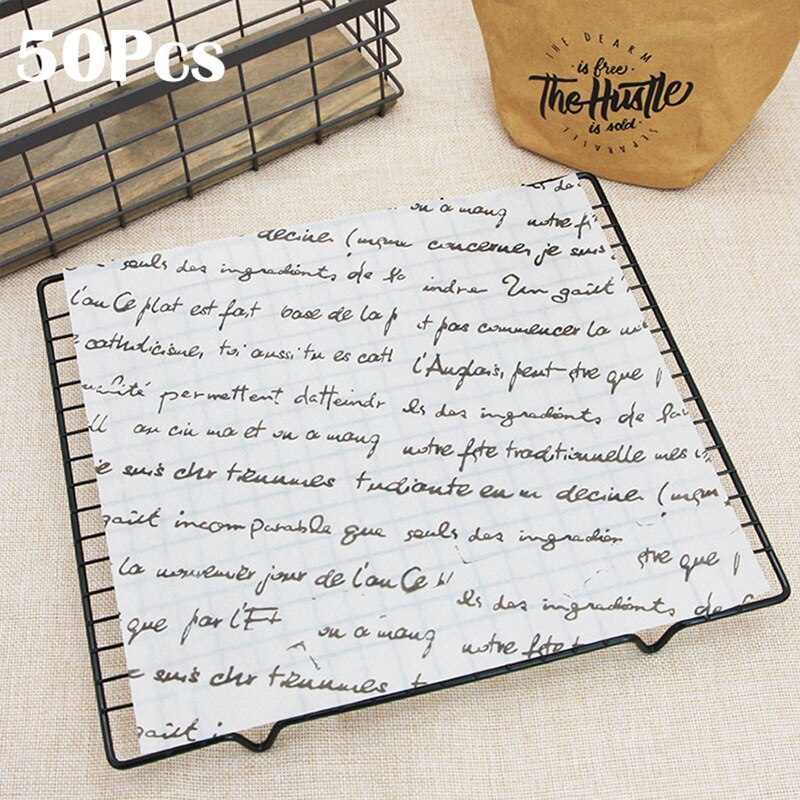 50Pcs
THE DEARM
is free.
The Hustle
is sold.
SEPARATELL
on a mang notre
decine. (
concerner je suis
seuls des ingredients de
indre Un gaût
l'au Ce plat est fait base de la p
t pas commencer la
catholicisme, toi aussi tu es cath
l'Anglais, peut-être que
alité permettent datteindr
ls des ingredients de
au cin ma et on a mang
notre fête traditionnelle mes
e suis chr tiennes tudiante en
decine. (
gaût incomparable que seuls des ingredien
tre que
la jour de l'au Ce
ls des ingredients de
que par l'Et on a mang notre fête
e suis chr tiennes t
gaût i